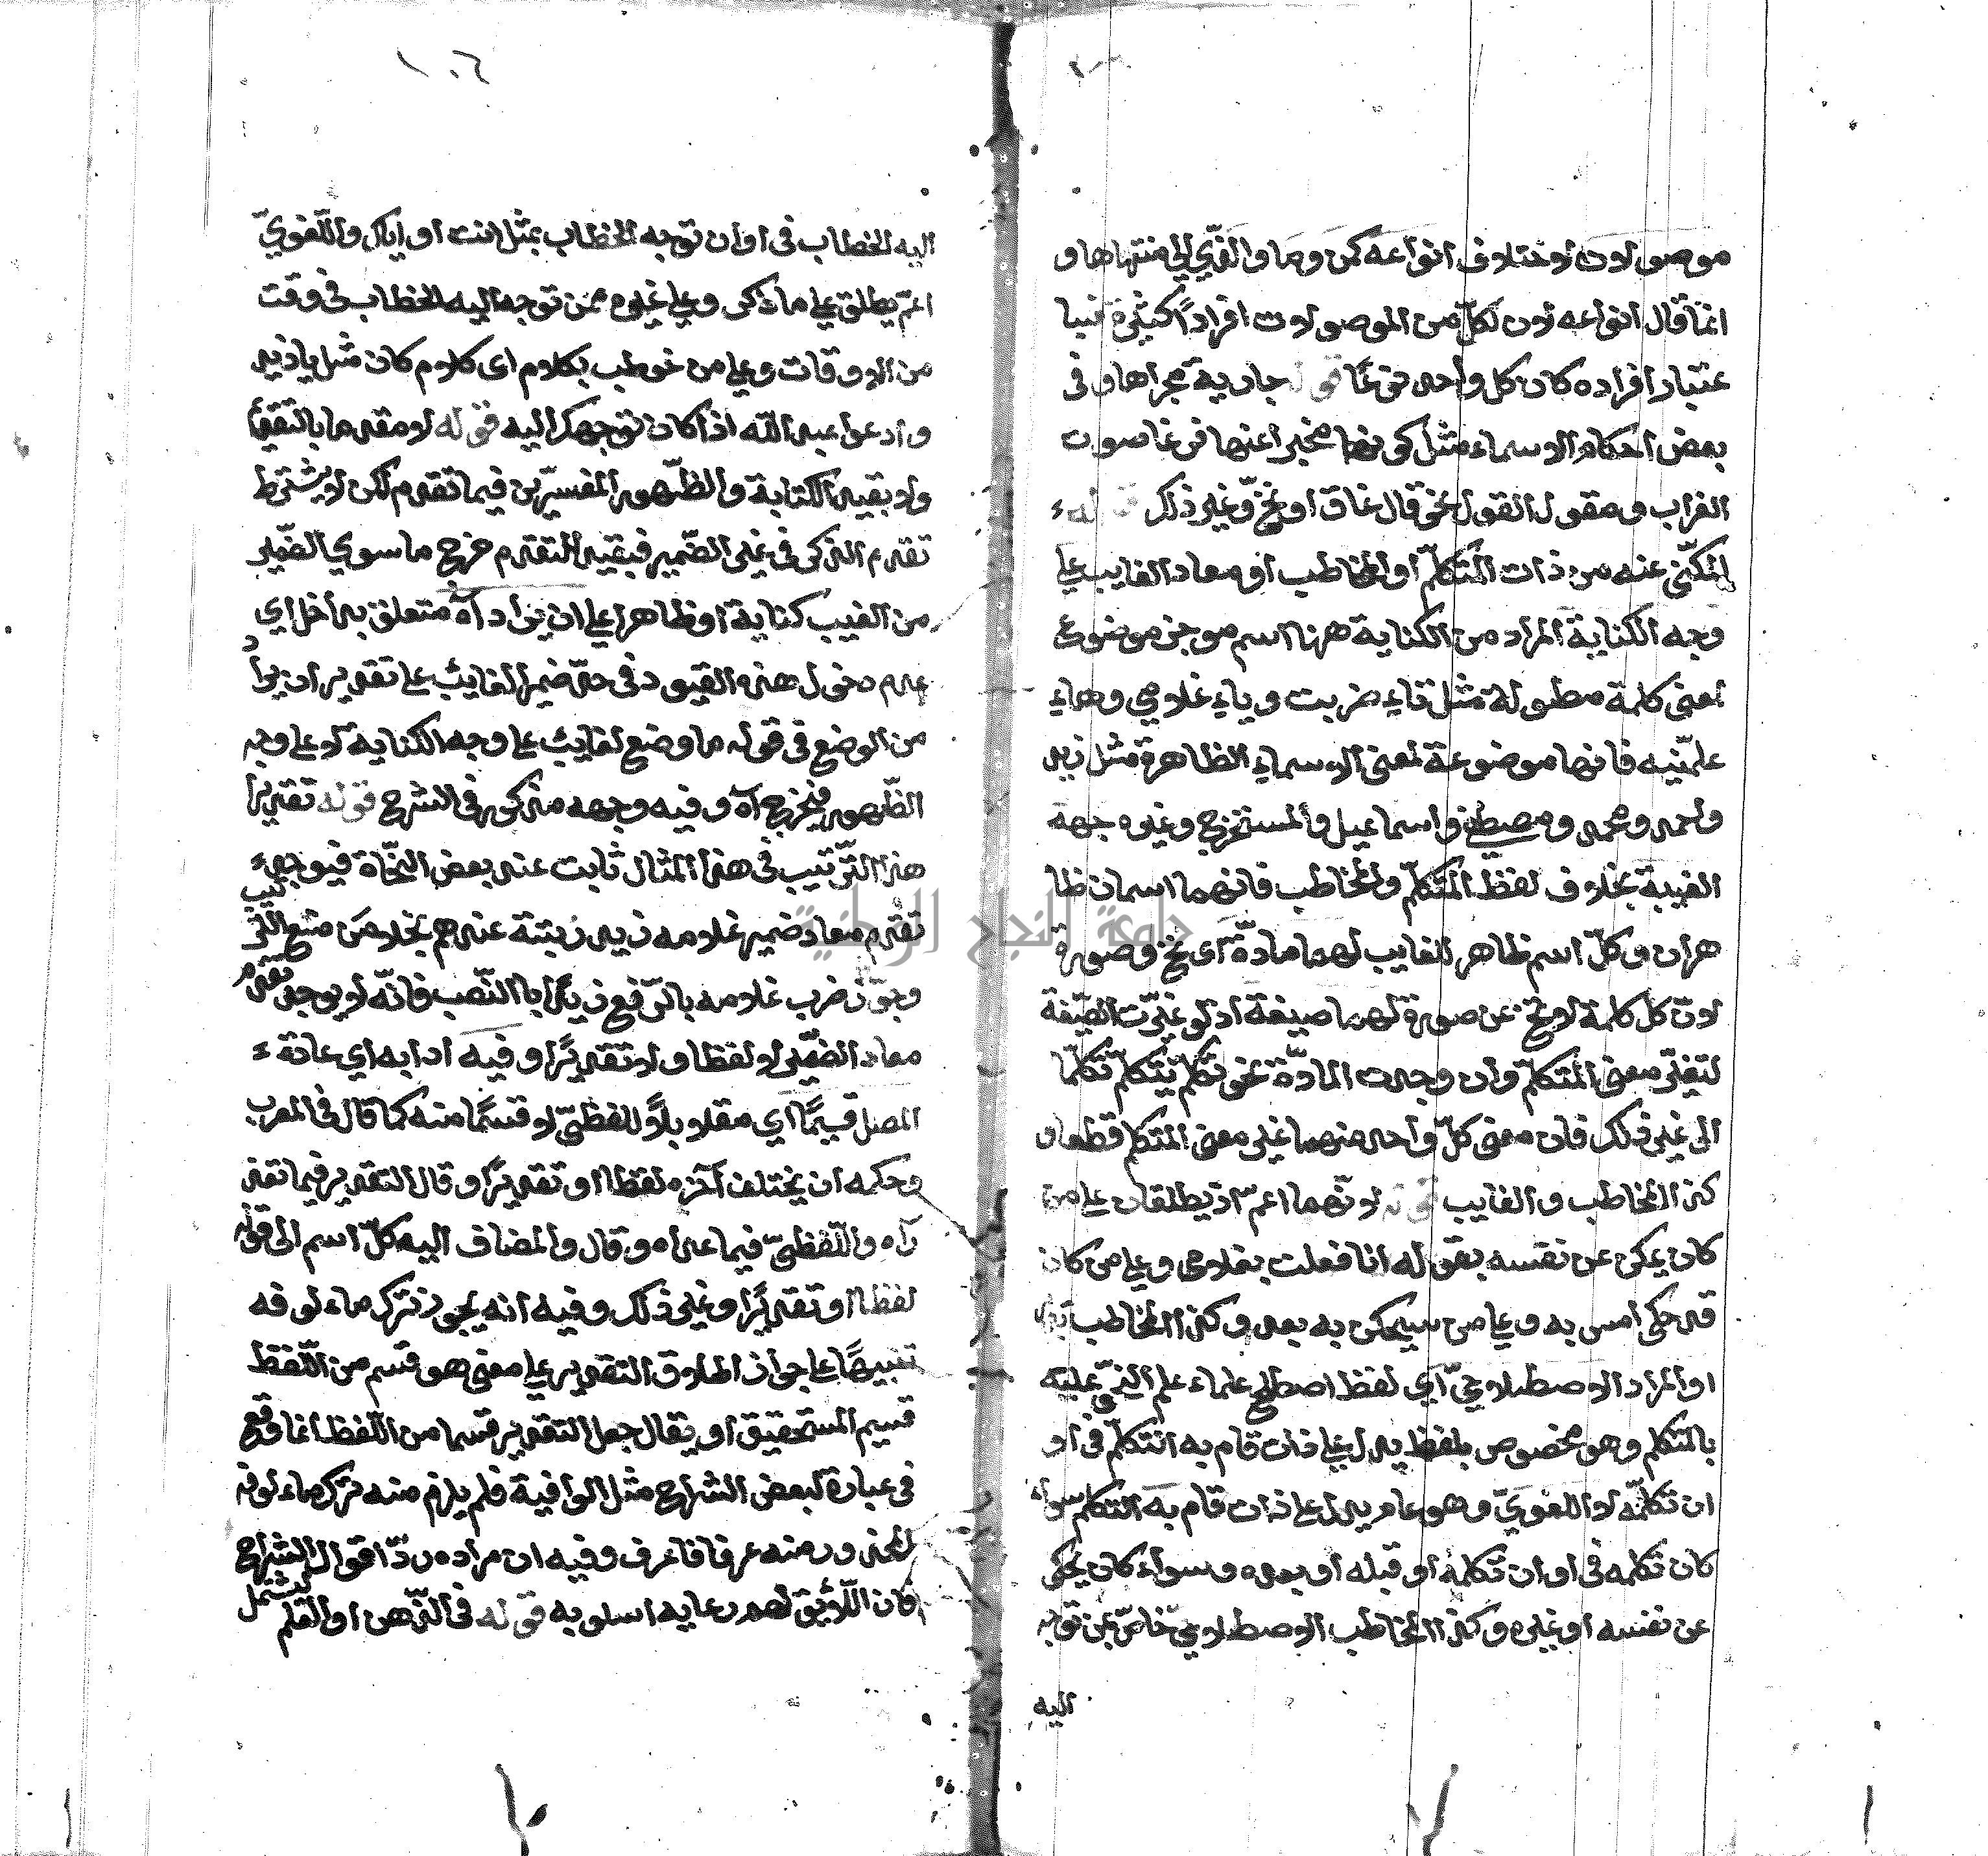 موصولات لاختلاف أنواعه كمن وما والذي إلى منتهاها و
إنما قال أنواعه لأن لكل من الموصولات افراداً كثيرة فبا
عتبار أفراده كان كل واحد نوعا قوله جارية مجراها في
بعض أحكام الاسماء مثل كونها مخبرا عنها في غاصوت
الغراب ومقول القول نحو قال غاق أو نخ وغير ذلك قوله
المكنى عنه من ذات المتكلم أو المخاطب أو معاد الغايب على
وجه الكناية المراد من الكناية ههنا اسم موجز موضوع
لمعنى كلمة مطولة مثل تاء ضربت وياء غلامي وهاء
علمنيه فانها موضوعة لمعنى الاسماء الظاهرة مثل زيد
وأحمد ومحمد ومصطفى واسماعيل والمستخرج وغيره جهة
الغيبة بخلاف لفظ المتكلم والمخاطب فانهما اسمان ظا
هران وكل اسم ظاهر للغايب لهما مادة أي نخ وصورة
لأن كل كلمة لا نخ عن صورة لهما صيغة اذ لو غيرت الصيغة
لتغير معنى المتكلم وأن وجدت المادة نحو تكلم يتكلم تكلما
إلى غير ذلك فان معنى كل واحد منهما غير معنى المتكلم قطعا و
كذا المخاطب والغايب قوله لأنهما اعم اذ يطلقان على من
كان يحكى عن نفسه بقوله أنا فعلت بغلامي وعلى من كان
قد حكى أمس به وعلى من سيحكى به بعد وكذا المخاطب
او المراد الاصطلاحي أي لفظ اصطلح علماء علم النحو عليه
بالمتكلم وهو مخصوص بلفظ يدل على ذات قام به التكلم في أو
ان تكلمه لا اللغوي وهو عام يدل على ذات قام به التكلم سواء
كان تكلمه في أوان تكلمه أو قبله أو بعده وسواء كان يحكى
عن نفسه أو غيره وكذا المخاطب الاصطلاحي خاص بمن توجه
اليه
١٠٦
اليه الخطاب في أوان توجه الخطاب بمثل انت أو إياك واللغوي
اعم يطلق على ما ذكر وعلى غيره ممن توجه اليه الخطاب في وقت
من الاوقات وعلى من خوطب بكلام اى كلام كان مثل يا زيد
وادعوا عبد الله اذا كان توجهك اليه قوله لا مقدما بالتقييد
ولا بقيد الكناية والظهور المفسرين فيما تقدم لكن لا يشترط
تقدم الذكر في غير الضمير فبقيد التقدم خرج ما سوي الضمير
من الغيب كناية أو ظاهرا على ان يراد آه متعلق بداخل أي
عدم دخول هذه القيود في حد ضمير الغايب على تقدير أن يراد
من الوضع في قوله ما وضع لغايب على وجه الكناية لا على وجه
الظهور فيخرج آه وفيه وجهه مذكور في الشرح قوله تقديرا
هذا الترتيب في هذا المثال ثابت عند بعض النحاة فيوجد
تقدم معاد ضمير غلامه زيد رتبة عندهم بخلاف منع التركيب
وجوز ضرب غلامه بالرفع زيدا بالنصب فانه لا يوجد تقدم
معاد الضمير لا لفظا ولا تقديرًا وفيه ادابه أي عادة
المصل قسيمًا أي مقابلاً للفظيّ لا قسمًا منه كما قال في المعرب
وحكمه ان يختلف آخره لفظا او تقديرًا وقال التقدير فيما تعذ
رآه واللفظيّ فيما عداه وقال والمضاف اليه كل اسم الى قوله
لفظا او تقديرًا وغير ذلك وفيه أنه يجوز ترك مألوفه
تنبيهًا على جواز اطلاق التقدير على معنى هو قسم من اللفظ
قسيم المستحقيق أو يقال جعل التقدير قسما من اللفظ انما وقع
في عبارة لبعض الشراح مثل الوافية فلم يلزم منه ترك مألوفه
المحذور منه عرفا فاعرف وفيه ان مراده رد اقوال الشراح
فان اللائق لهم رعاية اسلوبه قوله في الذهن او القلم ليشتمل